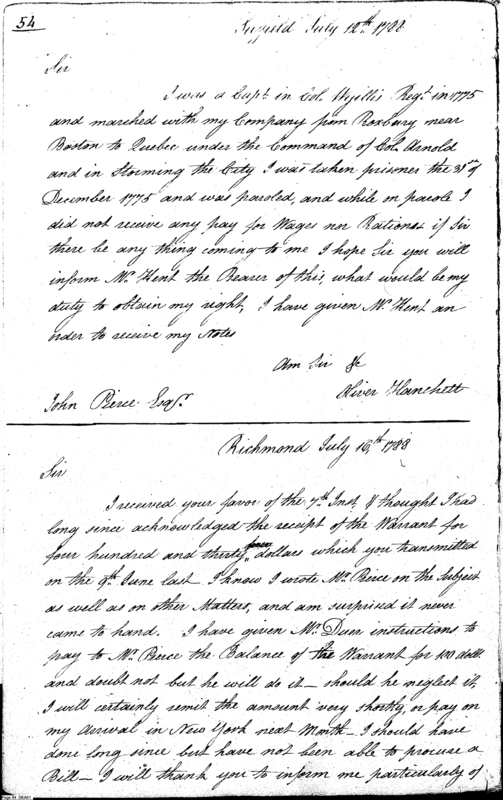 54
Suffield July 12th 1788
Sir
I was a Capt. in Col. Wyllis Regt. in 1775
and marched with my Company from Roxbury near
Boston to Quebec under the Command of Col. Arnold
and in Storming the City I was taken prisoner the 31st of
December 1775 and was paroled, and while on parole I
did not receive any pay for Wages nor Rations if Sir
there be any thing coming to me I hope Sir you will
inform Mr. Kent the Bearer of this, what would be my
duty to obtain my right, I have given Mr. Kent an
order to receive my Notes
Am Sir &c
Oliver Hanchett
John Pierce Esqr.
Richmond July 16th 1788
Sir
I received your favor of the 7th Inst. & thought I had
long since acknowledged the receipt of the Warrant for
four hundred and thirty seven dollars which you transmitted
on the 9th June last - I know I wrote Mr. Pierce on the Subject
as well as on other Matters, and am surprised it never
came to hand. I have given Mr. Duer instructions to
pay to Mr. Pierce the Balance of the Warrant for 100 dolls.
and doubt not but he will do it - should he neglect it,
I will certainly remit the amount very shortly, or pay on
my arrival in New York next Month - I should have
done long since but have not been able to procure a
Bill - I will thank you to inform me particularly of